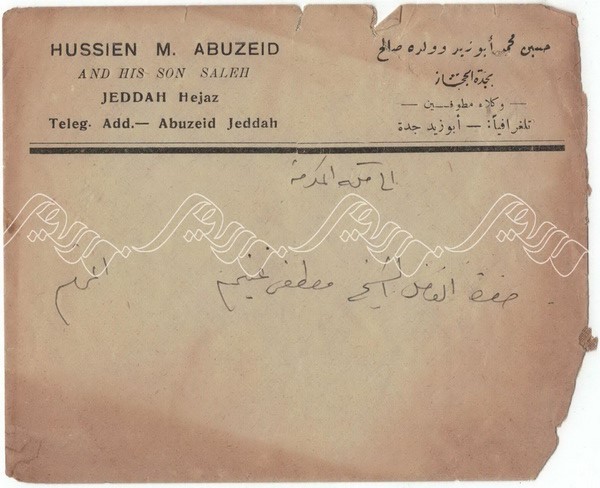 HUSSIEN M. ABUZEID
AND HIS SON SALEH
JEDDAH Hejaz
Teleg. Add.— Abuzeid Jeddah
حسين محمد أبوزيد وولده صالح
بجدة الحجاز
— وكلاء مطوفين —
تلغرافياً: — أبوزيد جدة
الى مكة المكرمة
حضرة الفاضل الشيخ مصطفى غنيم المحترم